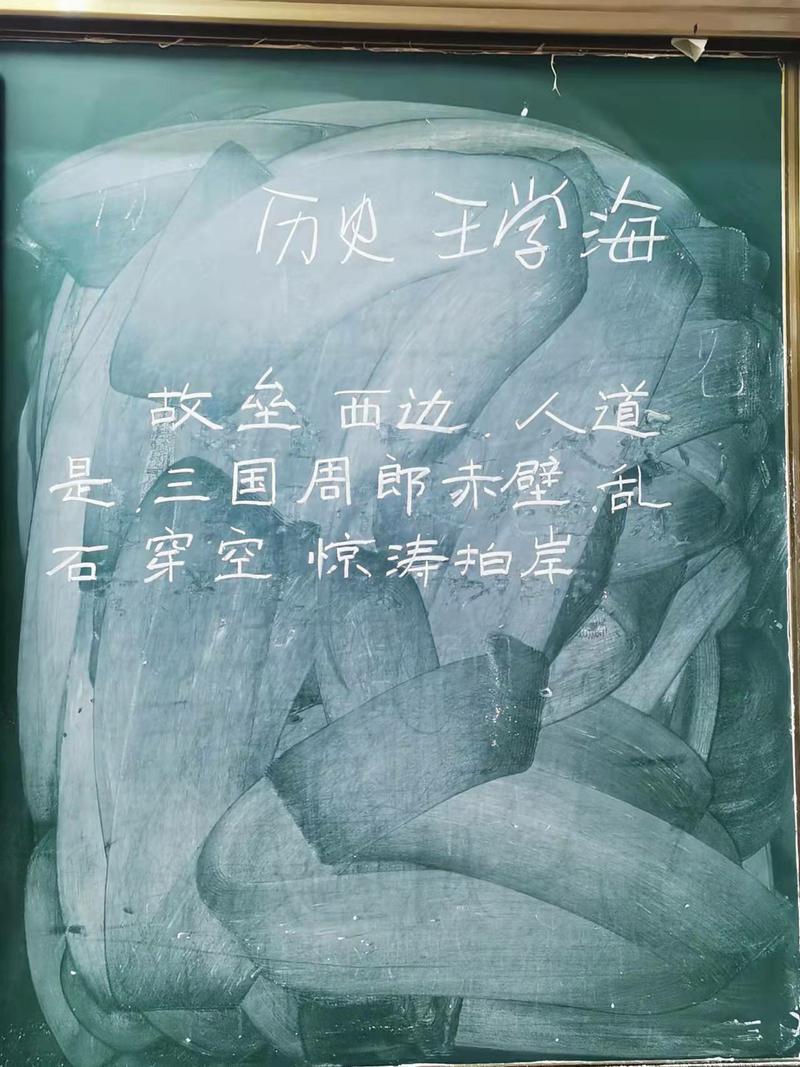 历史 王学海
故垒 西边.人道
是.三国周郎赤壁.乱
石穿空 惊涛拍岸